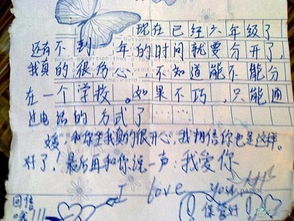 现在已经六年级了
还有不到一年的时间就要分开了，
我真的很伤心，不知道能不能分
在一个学校。如果不巧，只能通
过电话的方式了……
和你坐我真的很开心，我相信你也是这样。
好了，最后再和你说一声：我爱你
I love you
回信
保管好